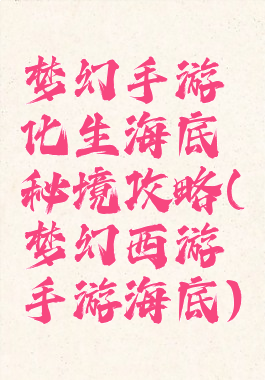 梦幻手游
化生海底
秘境攻略(
梦幻西游
手游海底)